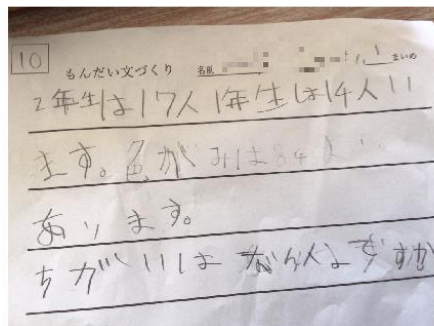 10 もんだい文づくり 名前 1 まいめ
2年生は17人1年生は14人い
ます。色がみは84まい
あります。
ちがいはなん人ですか